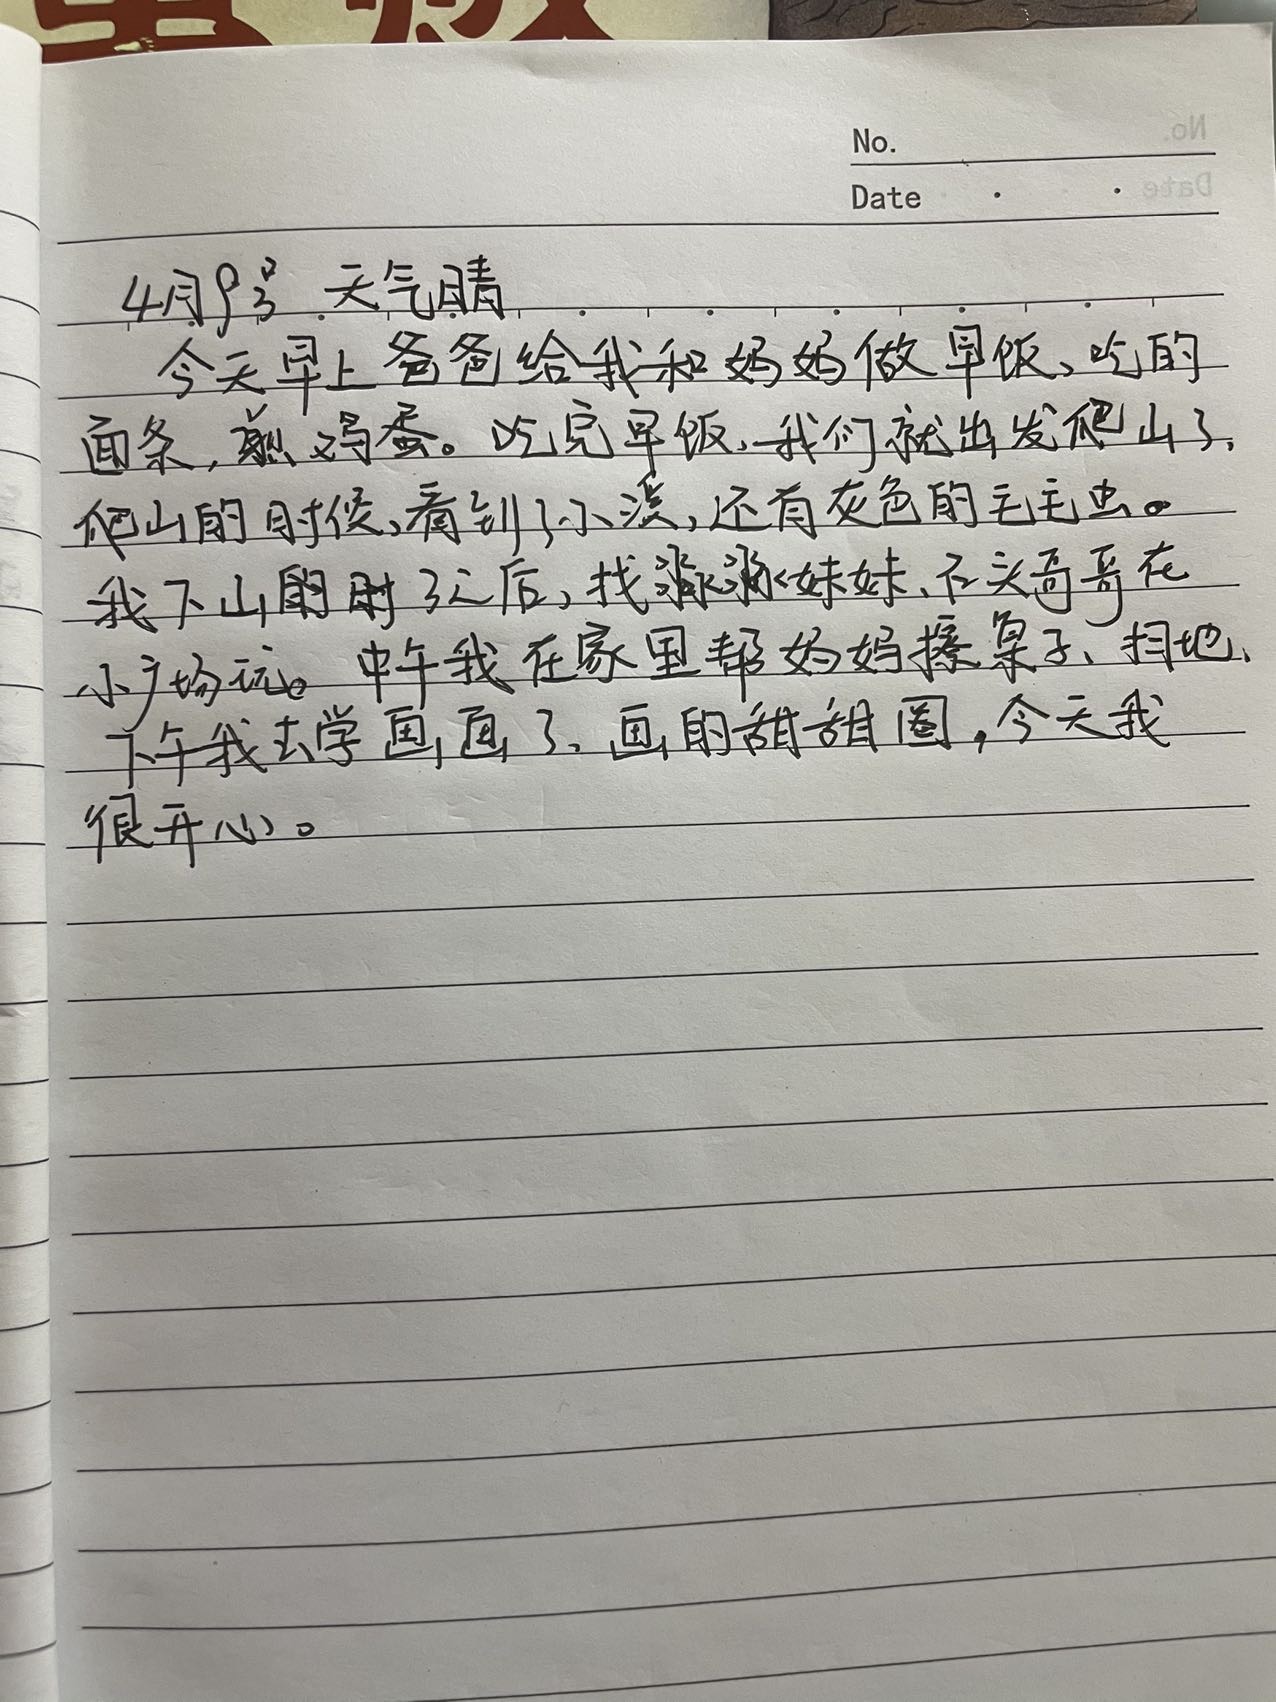 No.
Date
4月 天气晴
今天早上爸爸给我和妈妈做早饭、吃的
面条,煎鸡蛋。吃完早饭、我们就出发爬山了,
爬山的时候,看到了小溪,还有灰色的毛毛虫。
我下山的时了之后,找涵涵妹妹、石头哥哥在
小广场玩。中午我在家里帮妈妈擦桌子、扫地、
下午我去学画画了、画的甜甜圈,今天我
很开心。